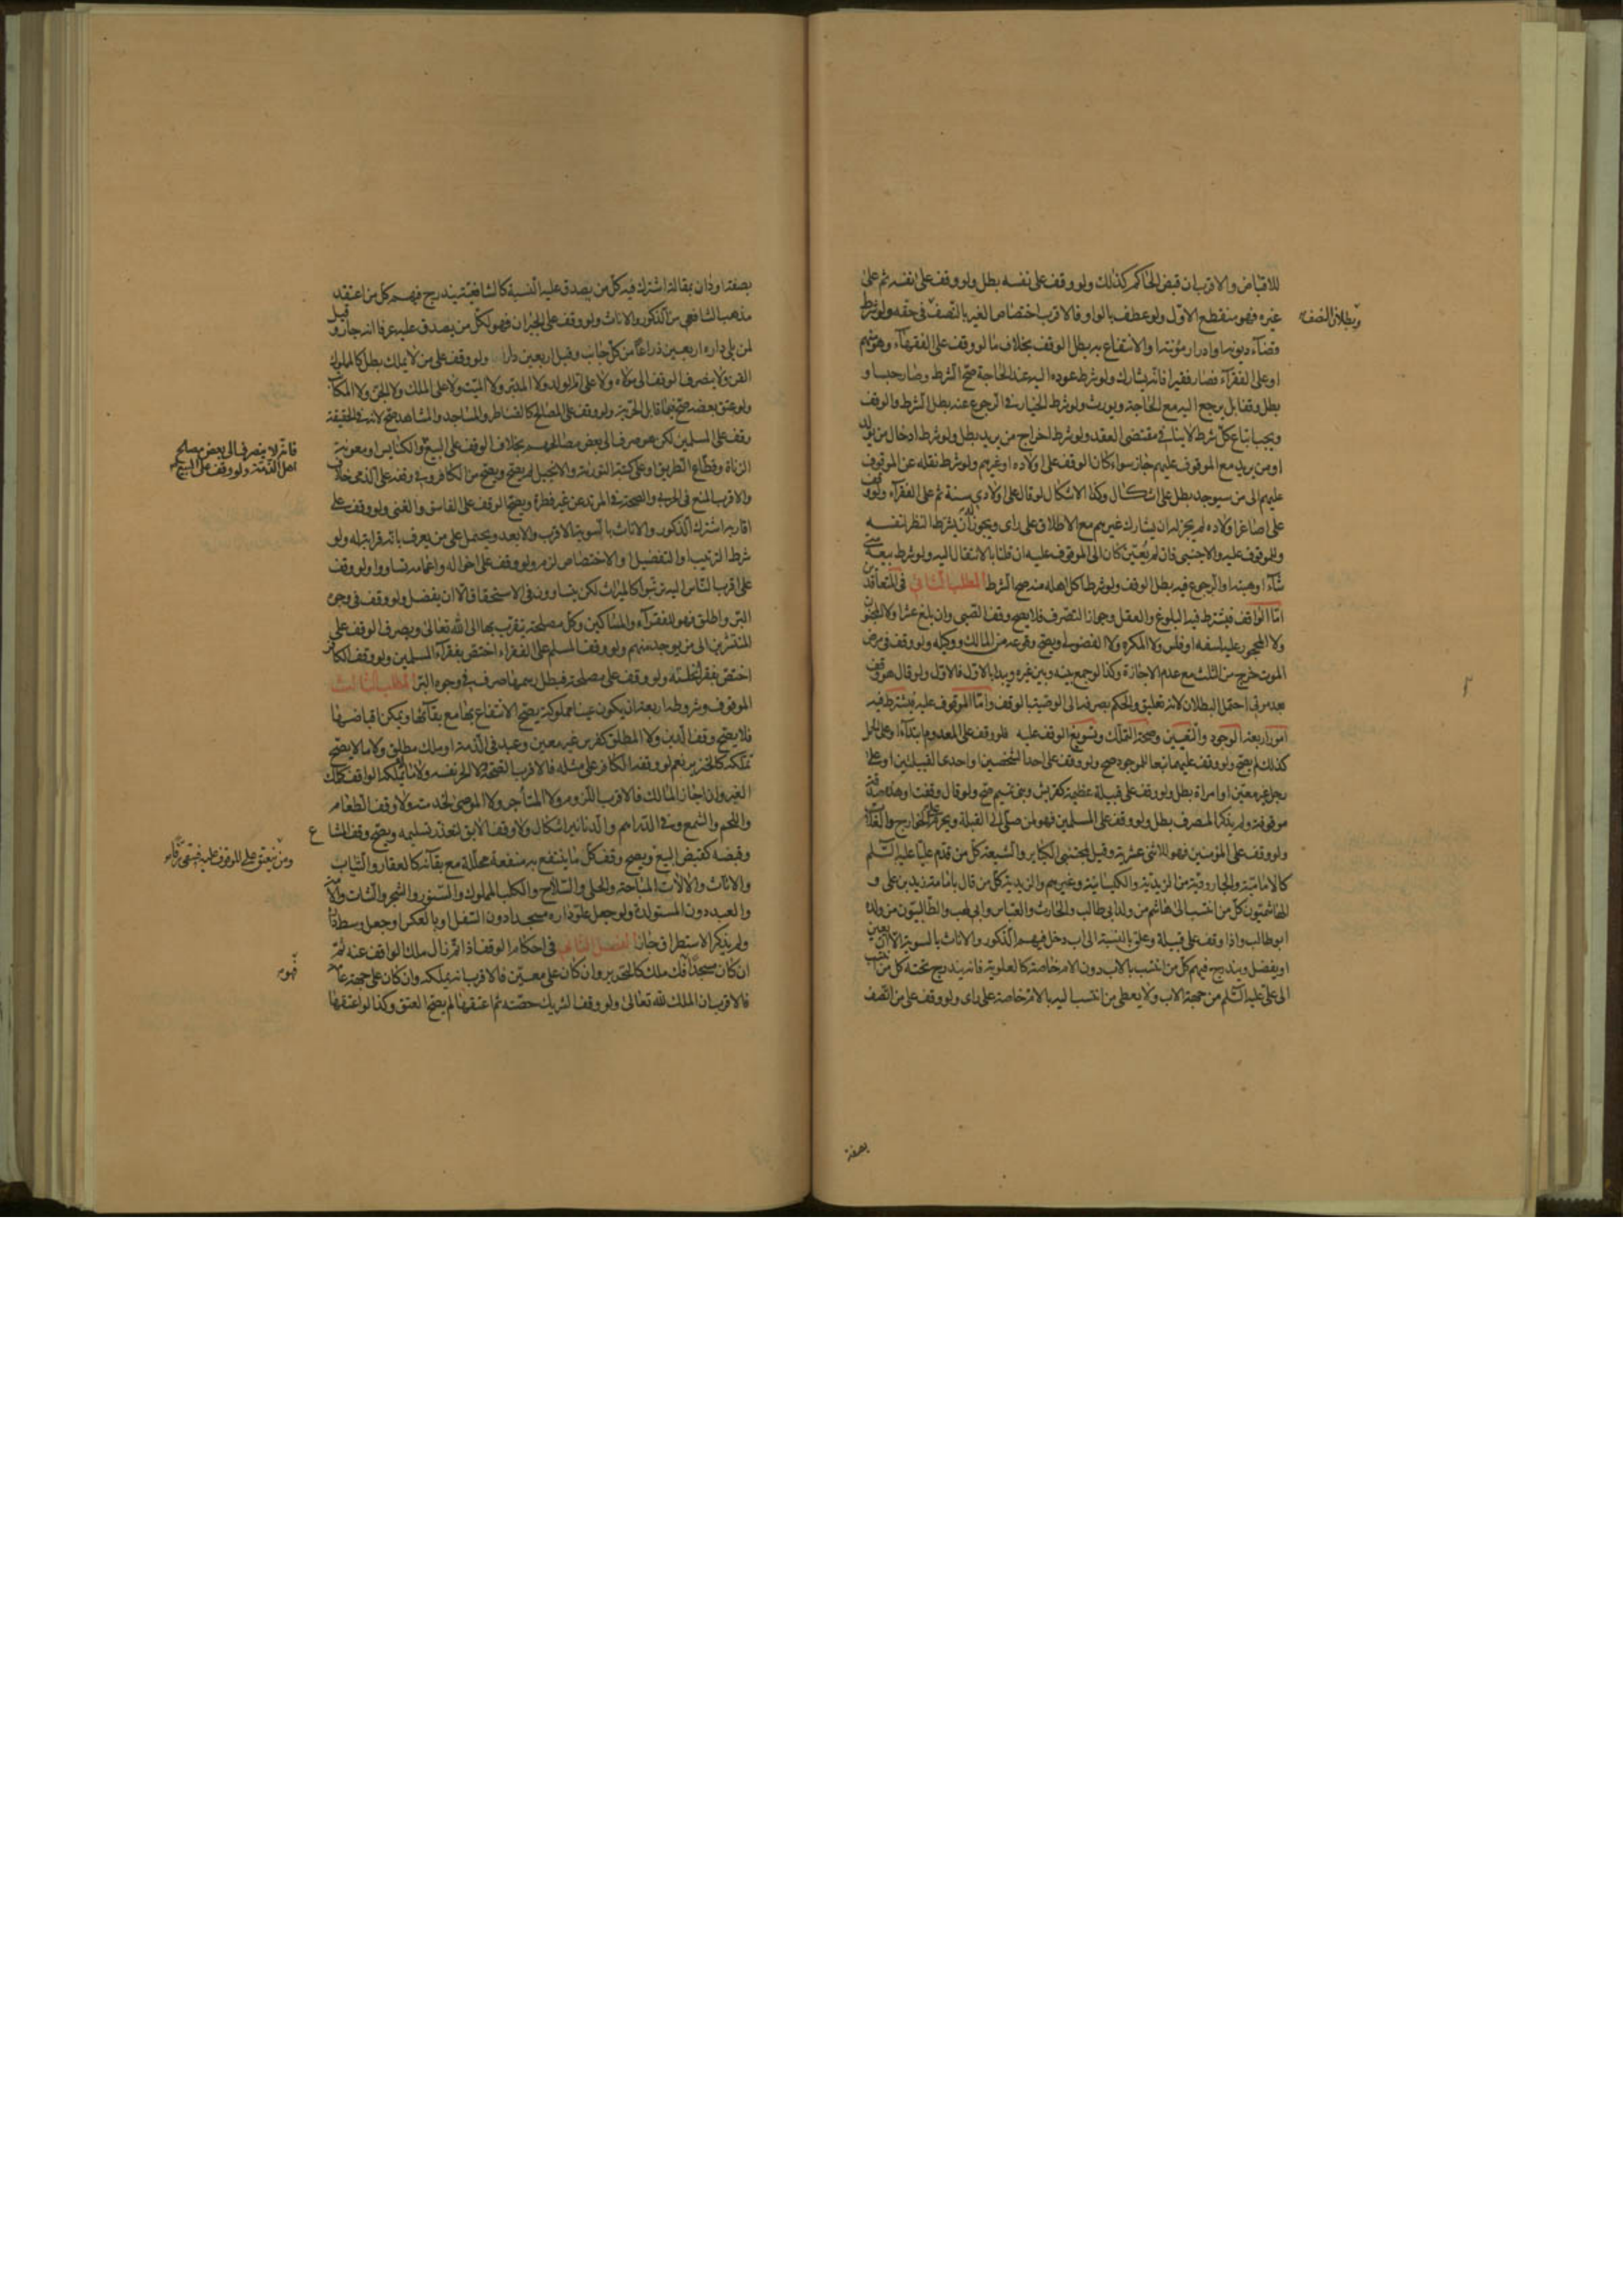 للاقباض والاقرب ان قبض الحاكم كذلك ولو وقف على نفسه بطل ولو وقف على نفسه ثم على
غيره فهو منقطع الاول ولو عطف بالواو فالاقرب اختصاص الغير بالنصف في حقه ولو شرط
وبطلان النصف
قضاء ديونه او ادرار مؤنته او الانتفاع به بطل الوقف بخلاف ما لو وقف على الفقهاء وهو منهم
او على الفقراء فصار فقيرا فانه يشارك ولو شرط عوده اليه عند الحاجة صح الشرط وصار حبسا و
بطل وقفا بل يرجع اليه مع الحاجة ويورث ولو شرط الخيار في الرجوع عنه بطل الشرط والوقف
ويجب اتباع كل شرط لا ينافي مقتضى العقد ولو شرط اخراج من يريد بطل ولو شرط ادخال من يولد
او من يريد مع الموقوف عليهم جاز سواء كان الوقف على اولاده او غيرهم ولو شرط نقله عن الموقوف
عليهم الى من سيوجد بطل على اشكال وكذا الاشكال لو قال على اولادي سنة ثم على الفقراء ولو وقف
على اصاغر اولاده لم يجز له ان يشارك غيرهم مع الاطلاق على راى ويجوز له ان يشرط النظر لنفسه
وللموقوف عليه والاجنبي فان لم يعين كان الى الموقوف عليه ان قلنا بالانتقال اليه ولو شرط بيعه متى
شاء او هبته او الرجوع فيه بطل الوقف ولو شرط اكل اهله منه صح الشرط المطلب الثاني في المتعاقدين
اما الواقف فيشترط فيه البلوغ والعقل وجواز التصرف فلا يصح وقف الصبي وان بلغ عشرا ولا المجنون
ولا المحجور عليه لسفه او فلس ولا المكره ولا الفضولي ويصح وقوعه من المالك ووكيله ولو وقف في مرض
الموت خرج من الثلث مع عدم الاجازة وكذا لو جمع بينه وبين غيره ويبدا بالاول فالاول ولو قال هو وقف
بعد موتي احتمل البطلان لانه تعليق والحكم بصرفه الى الوصية بالوقف واما الموقوف عليه فيشترط فيه
امور اربعة الوجود والتعيين وصحة التملك وتسويغ الوقف عليه فلو وقف على المعدوم ابتداء او على الحمل
كذلك لم يصح ولو وقف عليهما تبعا للموجود صح ولو وقف على احد الشخصين او احدى القبيلتين او على
رجل غير معين او امراة بطل ولو وقف على قبيلة عظيمة كقريش وبني تميم صح ولو قال وقفت او هذه صدقة
موقوفة ولم يذكر المصرف بطل ولو وقف على المسلمين فهو لمن صلى الى القبلة ويحرم على الخوارج والغلاة
ولو وقف على المؤمنين فهو للاثني عشرية وقيل لمجتنبي الكبائر والشيعة كل من قدم عليا عليه السلم
كالامامية والجارودية من الزيدية والكيسانية وغيرهم والزيدية كل من قال بامامة زيد بن علي و
الهاشميون كل من انتسب الى هاشم من ولد ابي طالب والحارث والعباس وابي لهب والطالبيون من ولده
ابو طالب واذا وقف على قبيلة وعلق بالنسبة الى اب دخل فيهم الذكور والاناث بالسوية الا ان يعين
او يفضل ويندرج فيهم كل من انتسب بالاب دون الام خاصة كالعلوية فانه يندرج تحته كل من انتسب
الى علي عليه السلم من جهة الاب ولا يعطى من انتسب اليه بالام خاصة على راى ولو وقف على من اتصف
بصفة
بصفة او دان بمقالة اشترك فيه كل من يصدق عليه النسبة كالشافعية يندرج فيهم كل من اعتقد
مذهب الشافعي من الذكور والاناث ولو وقف على الجيران فهو لكل من يصدق عليه عرفا انه جار وقيل
لمن يلي داره اربعين ذراعا من كل جانب وقيل اربعين دارا ولو وقف على من لا يملك بطل كالمملوك
القن ولا ينصرف الوقف الى مولاه ولا على ام الولد ولا المدبر ولا الميت ولا على الملك ولا الجن ولا المكاتب
ولو عتق بعضه صح فيما قابل الحرية ولو وقف على المصالح كالقناطر والمساجد والمشاهد صح لانه في الحقيقة
وقف على المسلمين لكن هو صرف الى بعض مصالحهم بخلاف الوقف على البيع والكنايس او معونة
فانه لا ينصرف الى بعض مصالح
اهل الذمة ولو وقف على البيع
الزناة وقطاع الطريق او على كتبة التورية والانجيل لم يصح ويصح من الكافر وفي وقفه على الذمي خلاف
والاقرب المنع في الحربي والصحة في المرتد عن غير فطرة ويصح الوقف على الفاسق والغني ولو وقف على
اقاربه اشترك الذكور والاناث بالسوية الاقرب والابعد ويحتمل على من يعرف بانه قرابة له ولو
شرط الترتيب او التفضيل او الاختصاص لزم ولو وقف على اخواله واعمامه تساووا ولو وقف
على اقرب الناس اليه ترتبوا كالميراث لكن يتساوون في الاستحقاق الا ان يفضل ولو وقف في وجوه
البر واطلق فهو للفقراء والمساكين وكل مصلحة يتقرب بها الى الله تعالى ويصرف الوقف على
المنتشرين الى من يوجد منهم ولو وقف المسلم على الفقراء اختص بفقراء المسلمين ولو وقف الكافر
اختص بفقراء نحلته ولو وقف على مصلحة فبطل رسمها صرف في وجوه البر المطلب الثالث
الموقوف وشروطه اربعة ان يكون عينا مملوكة يصح الانتفاع بها مع بقائها ويمكن اقباضها
فلا يصح وقف الدين ولا المطلق كفرس غير معين وعبد في الذمة او ملك مطلق ولا ما لا يصح
تملكه كالخنزير نعم لو وقفه الكافر على مثله فالاقرب الصحة ولا الحر نفسه ولا ما لا يملكه الواقف كملك
الغير وان اجاز المالك فالاقرب اللزوم ولا المستأجر ولا الموصى بخدمته ولا وقف الطعام
واللحم والشمع وفي الدراهم والدنانير اشكال ولا وقف الابق لتعذر تسليمه ويصح وقف المشاع
وقبضه كقبض البيع ويصح وقف كل ما ينتفع به منفعة محللة مع بقائه كالعقار والثياب
ومن ينعتق على الموقوف عليه فيبقى رقا
والاثاث والالات المباحة والحلي والسلاح والكلب المملوك والسنور والشجر والشاة والامة
والعبد دون المستولدة ولو جعل علو داره مسجدا دون السفل او بالعكس او جعل وسط داره
ولم يذكر الاستطراق جاز الفصل الثاني في احكام الوقف اذا تم زال ملك الواقف عنه ثم
ان كان مسجدا فهو فك ملك كالتحرير وان كان على معين فالاقرب انه يملكه وان كان على جهة عامة
فهو
فالاقرب ان الملك لله تعالى ولو وقف الشريك حصته ثم اعتقها لم يصح العتق وكذا لو اعتقها